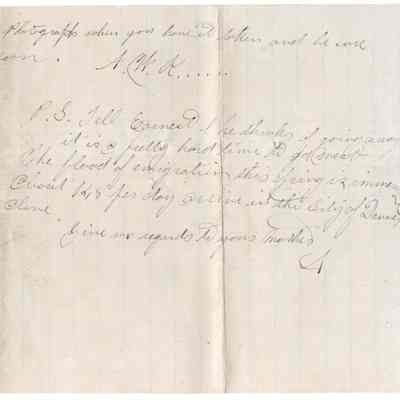 Photograph when you have it taken and be sure
soon.
N. W. K.....
P.S. Tell Earnest if he thinks of going away
it is a pretty hard time to go West
The flood of emigration this Spring is immen
about 125 per day arrive in the City of Denver
alone
Give my regards to your mother